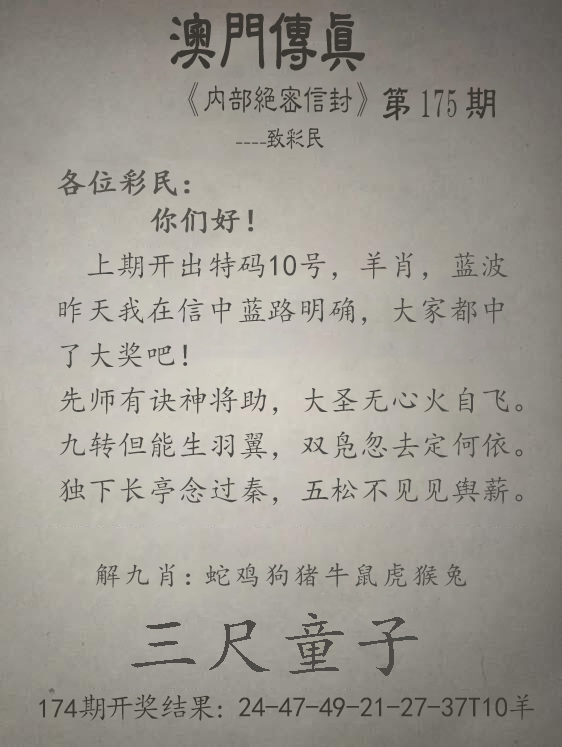 澳門傳眞
《内部絕密信封》第175期
----致彩民
各位彩民：
你们好！
上期开出特码10号，羊肖，蓝波
昨天我在信中蓝路明确，大家都中
了大奖吧！
先师有诀神将助，大圣无心火自飞。
九转但能生羽翼，双凫忽去定何依。
独下长亭念过秦，五松不见见舆薪。
解九肖：蛇鸡狗猪牛鼠虎猴兔
三尺童子
174期开奖结果：24-47-49-21-27-37T10羊